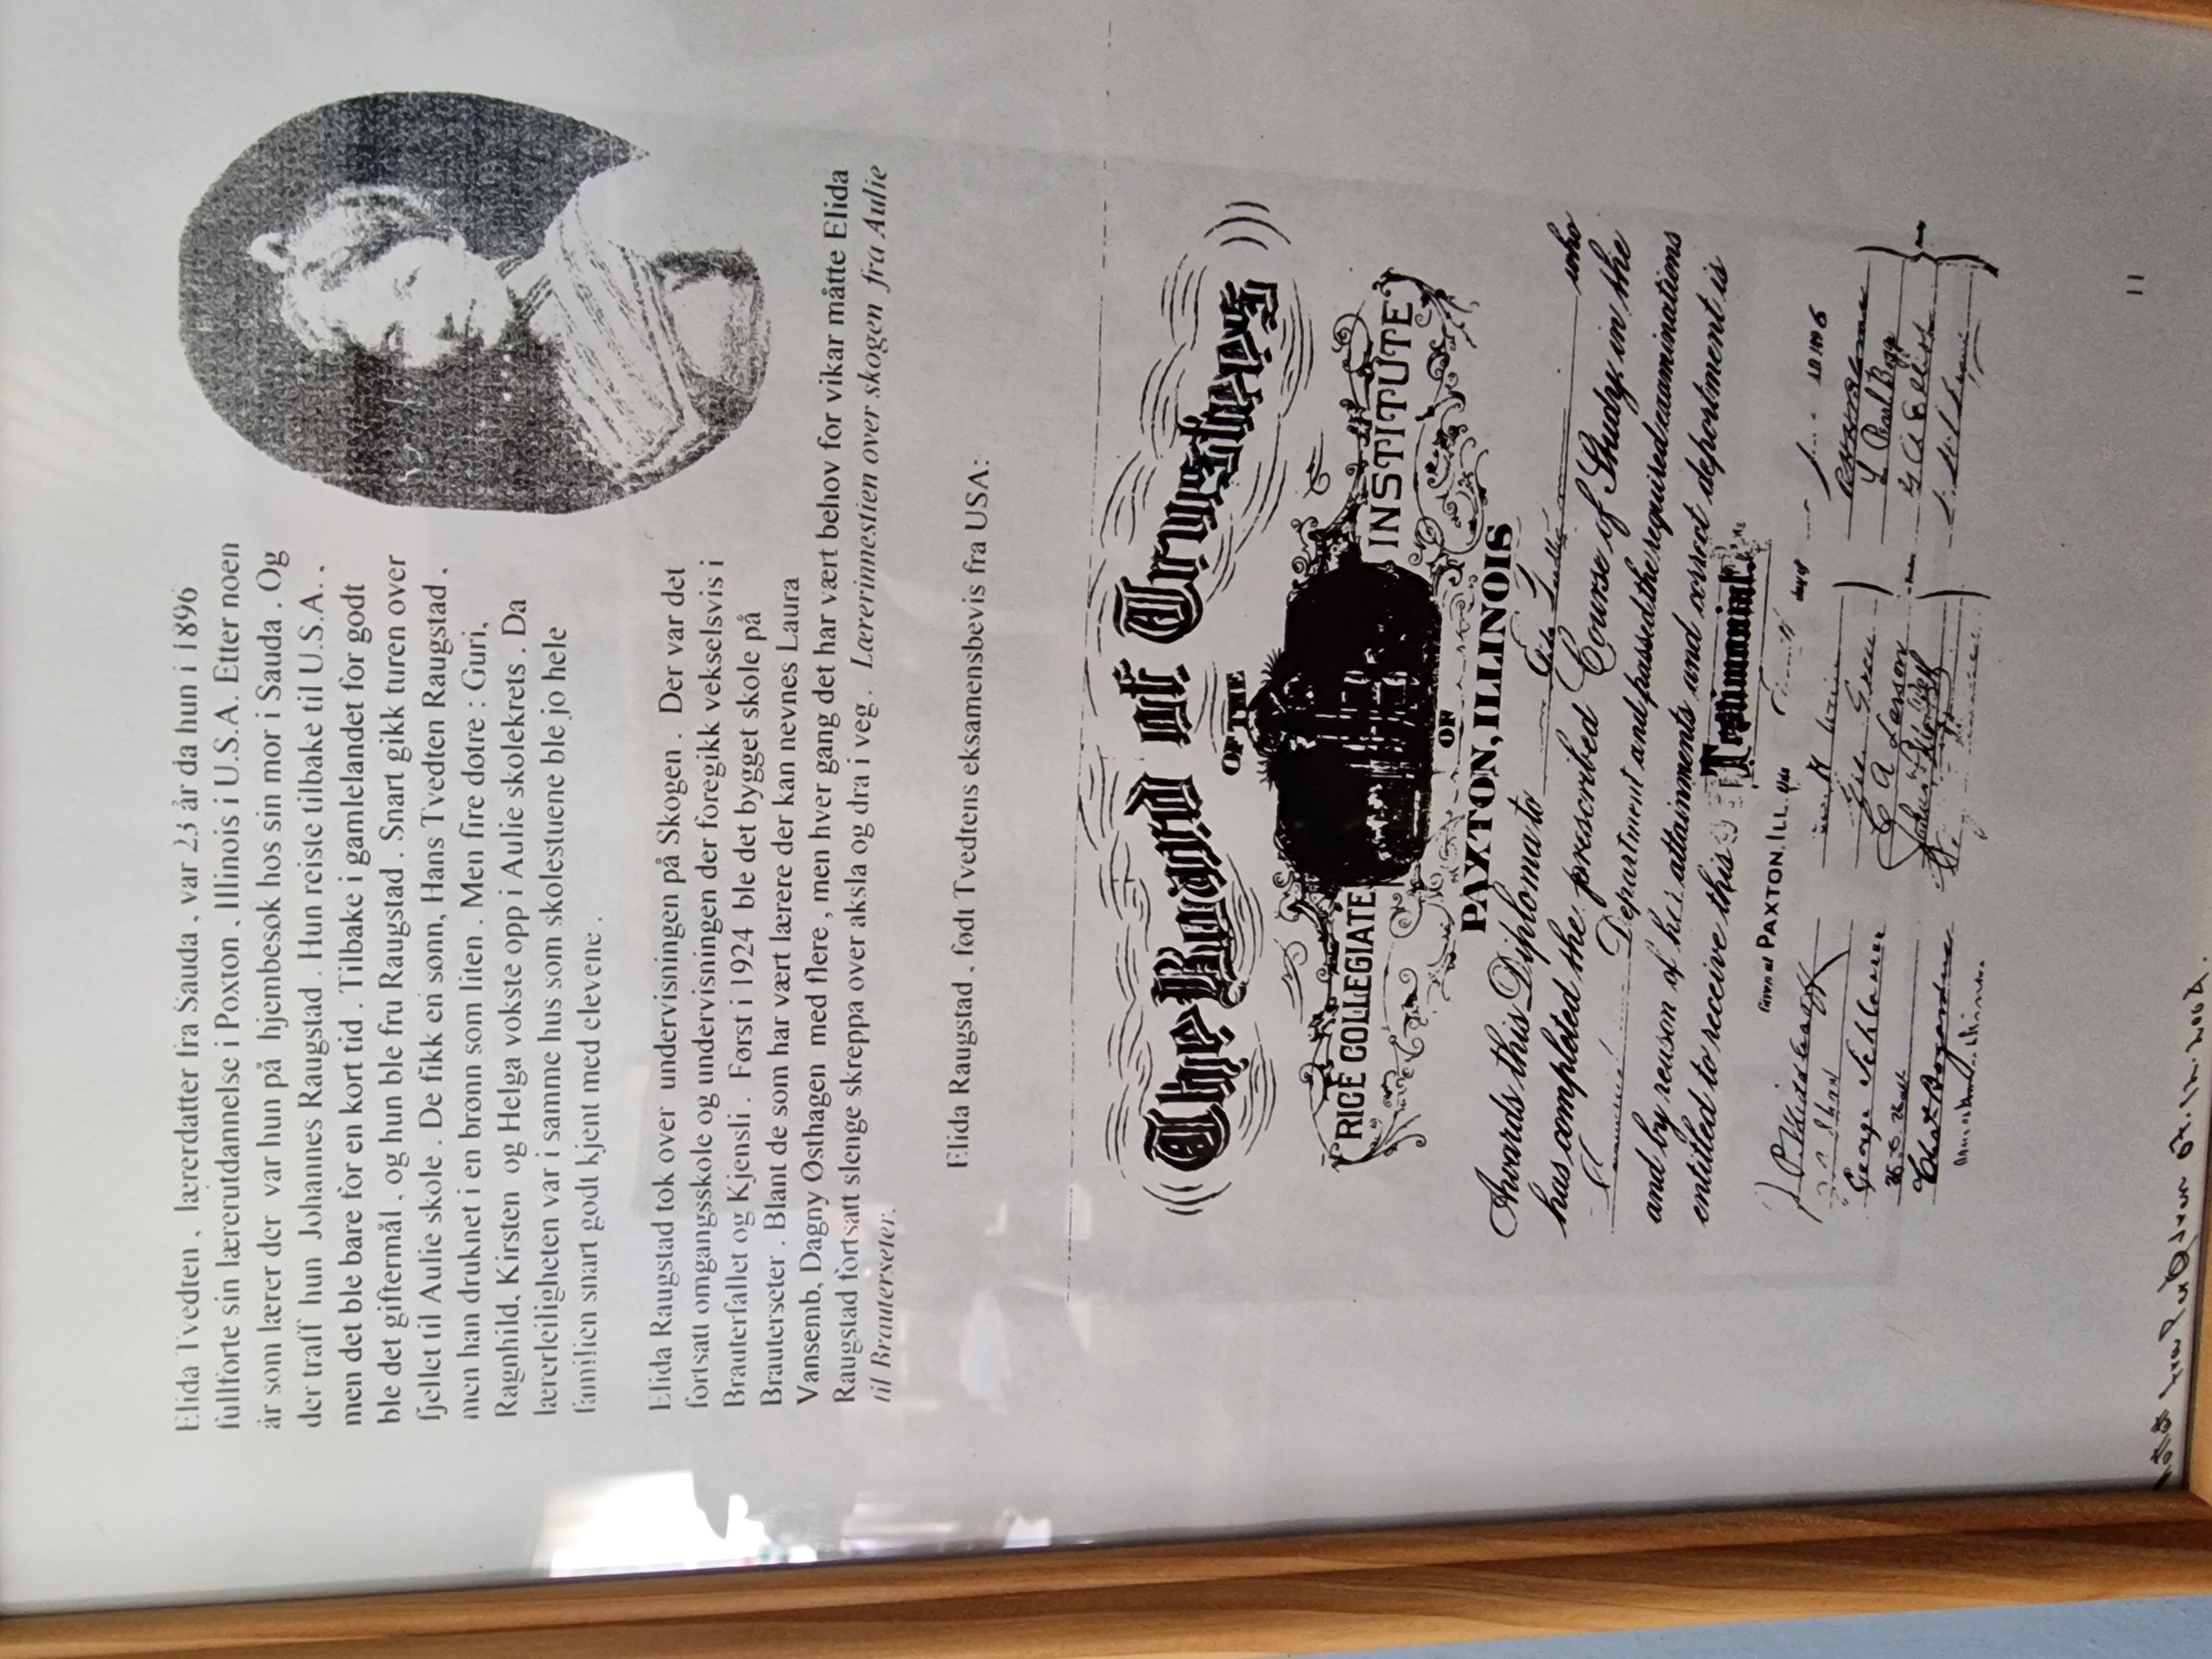 Elida Tvedten , lærerdatter fra Sauda , var 23 år da hun i 1896
fullførte sin lærerutdannelse i Poxton , Illinois i U.S.A. Etter noen
år som lærer der var hun på hjembesøk hos sin mor i Sauda . Og
der traff hun Johannes Raugstad . Hun reiste tilbake til U.S.A. ,
men det ble bare for en kort tid . Tilbake i gamlelandet for godt
ble det giftermål , og hun ble fru Raugstad . Snart gikk turen over
fjellet til Aulie skole . De fikk en sønn, Hans Tvedten Raugstad ,
men han druknet i en brønn som liten . Men fire døtre : Guri,
Ragnhild, Kirsten og Helga vokste opp i Aulie skolekrets . Da
lærerleiligheten var i samme hus som skolestuene ble jo hele
familien snart godt kjent med elevene .
Elida Raugstad tok over undervisningen på Skogen . Der var det
fortsatt omgangsskole og undervisningen der foregikk vekselsvis i
Brauterfallet og Kjensli . Først i 1924 ble det bygget skole på
Brauterseter . Blant de som har vært lærere der kan nevnes Laura
Vansenb, Dagny Østhagen med flere , men hver gang det har vært behov for vikar måtte Elida
Raugstad fortsatt slenge skreppa over aksla og dra i veg . Lærerinnestien over skogen fra Aulie
til Brauterseter.
Elida Raugstad , født Tvedtens eksamensbevis fra USA:
The Board of Trustees
OF THE
RICE COLLEGIATE INSTITUTE
OF
PAXTON, ILLINOIS
Awards this Diploma to who
has completed the prescribed Course of Study in the
Department and passed the required examinations
and by reason of his attainments and correct deportment is
entitled to receive this Testimonial
Given at PAXTON, ILL. this day of
George
C A Larson
11